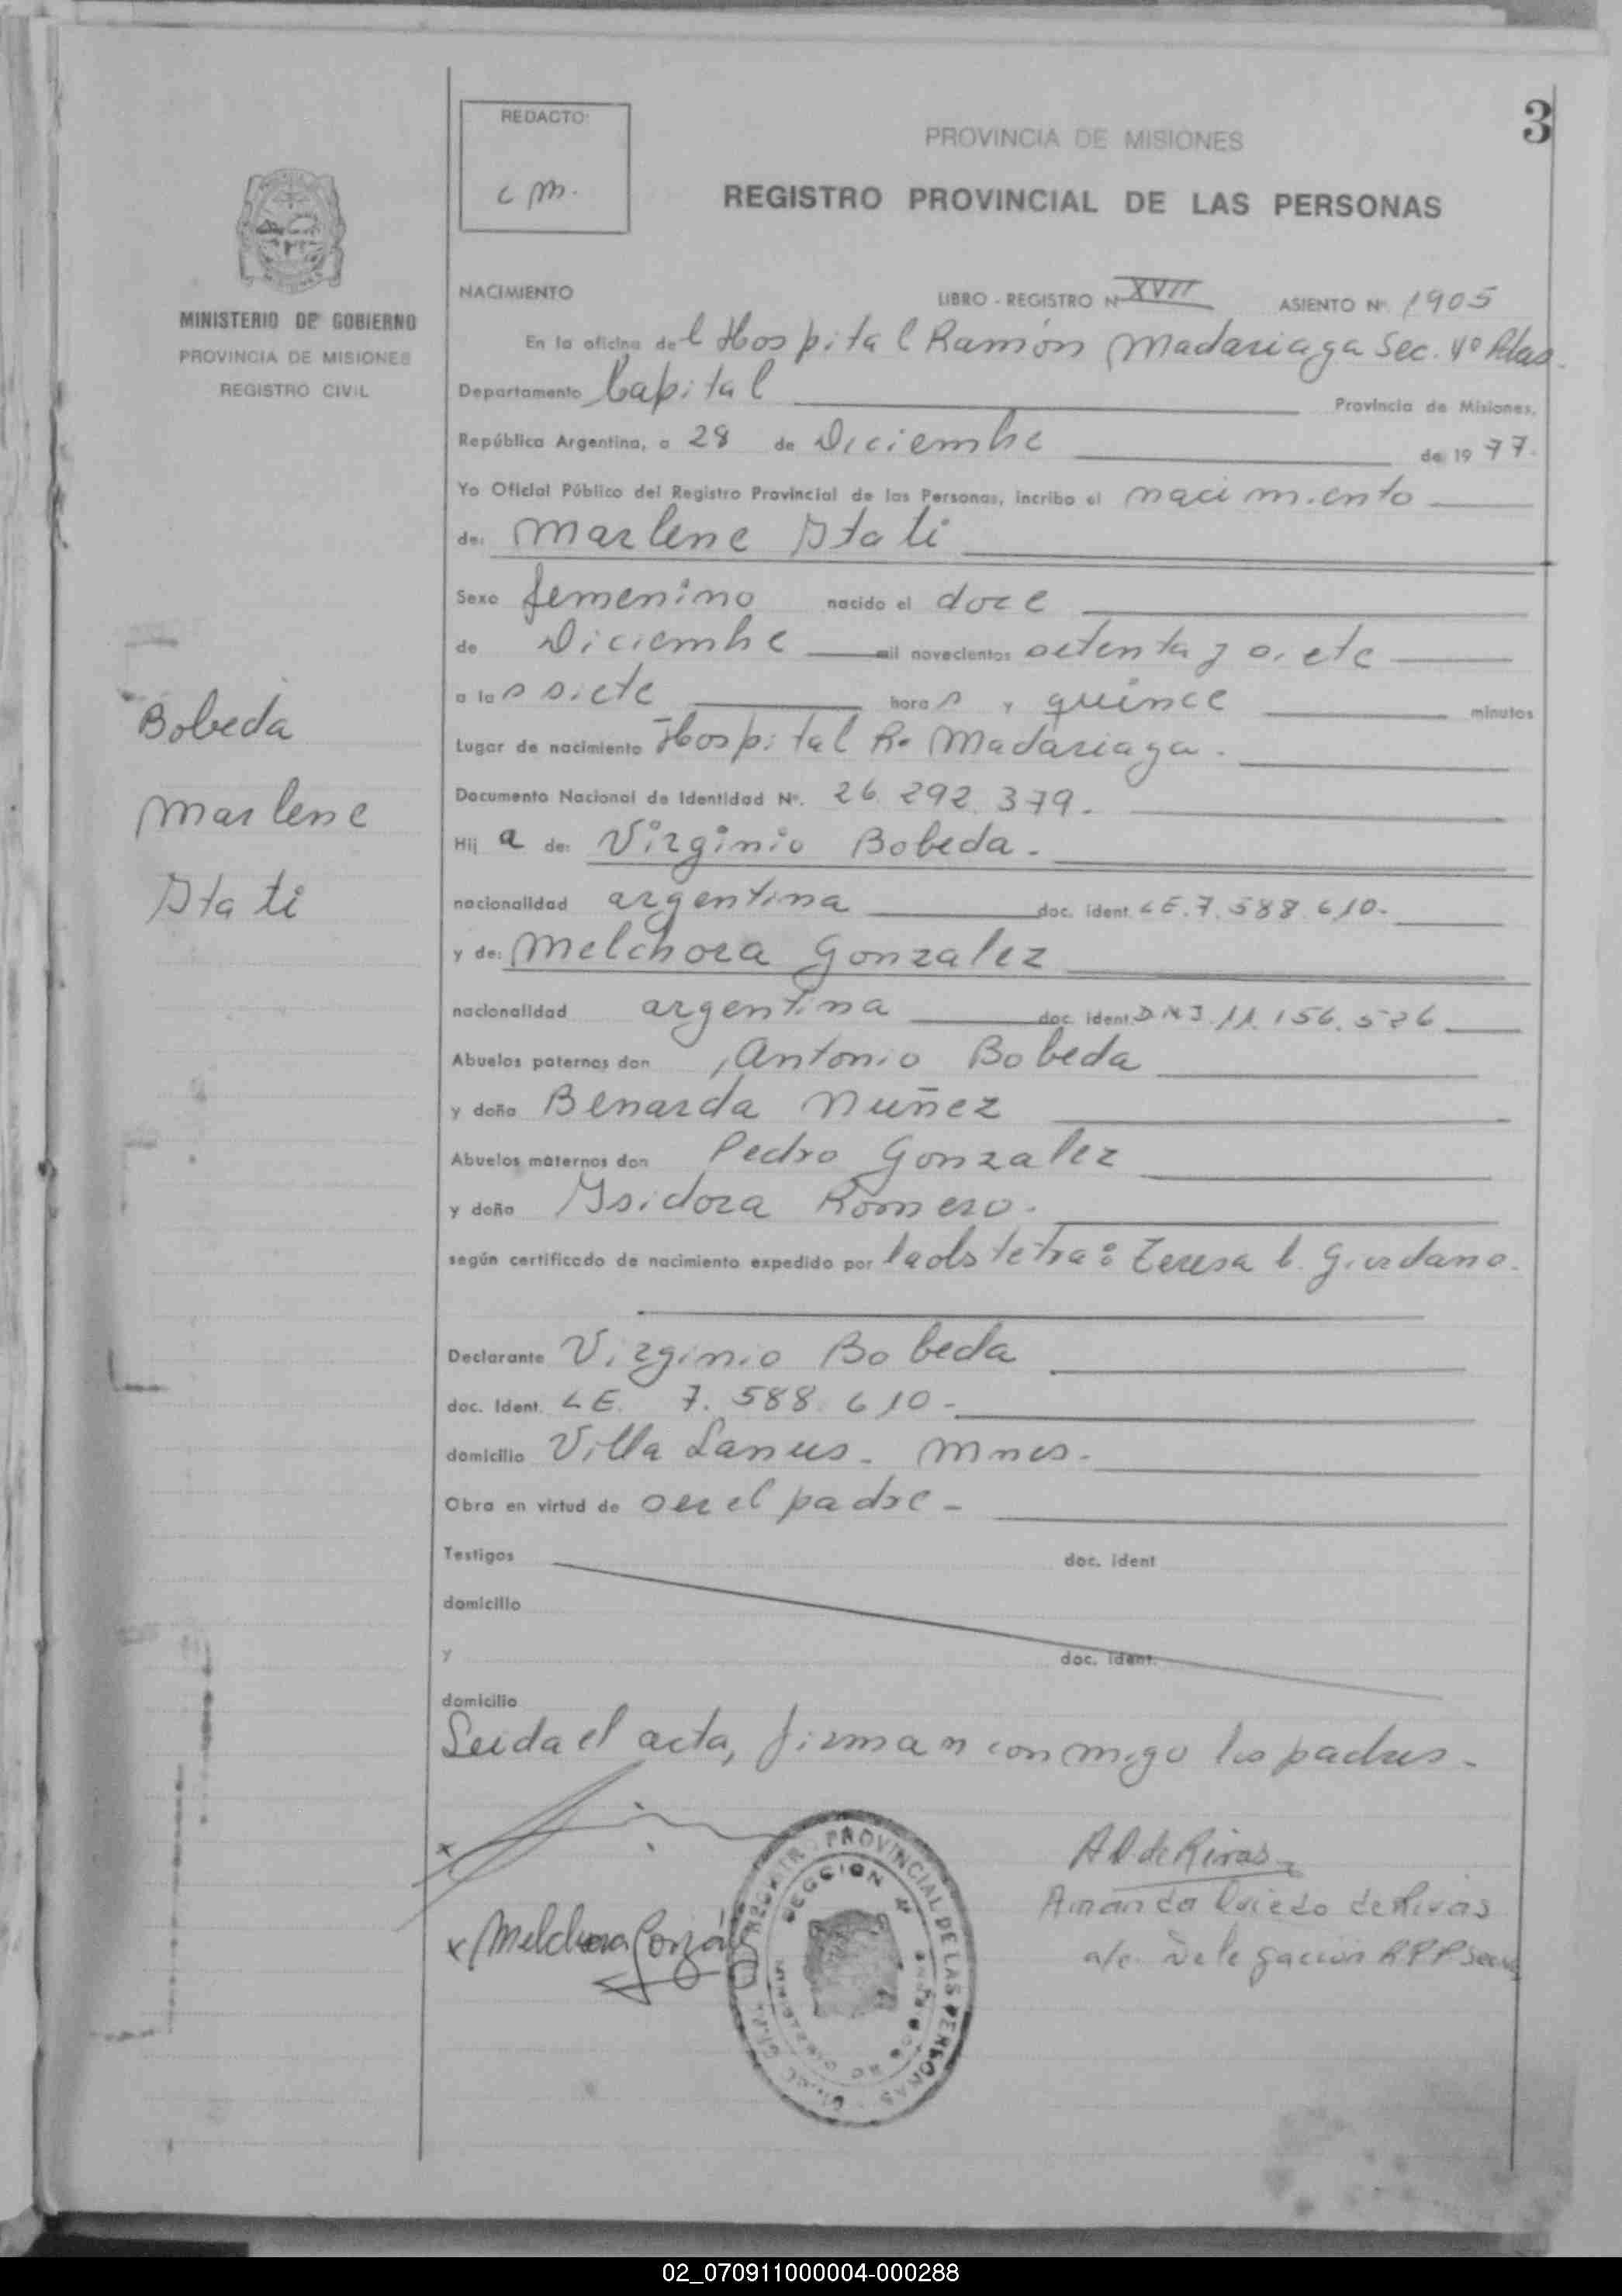 3
REDACTO:
c m.
PROVINCIA DE MISIONES
REGISTRO PROVINCIAL DE LAS PERSONAS
MINISTERIO DE GOBIERNO
PROVINCIA DE MISIONES
REGISTRO CIVIL
NACIMIENTO LIBRO - REGISTRO Nº XVII ASIENTO Nº 1905
En la oficina del Hospital Ramón Madariaga Sec. 4º Pdas.
Departamento Capital Provincia de Misiones,
República Argentina, a 28 de Diciembre de 1977.
Yo Oficial Público del Registro Provincial de las Personas, incribo el nacimiento
de: Marlene Itati
Sexo femenino nacido el doce
de Diciembre mil novecientos setenta y siete
a las siete horas y quince minutos
Lugar de nacimiento Hospital R. Madariaga.
Documento Nacional de Identidad Nº. 26.292.379.
Hija de: Virginio Bobeda.
nacionalidad argentina doc. ident. LE.7.588.610.
y de: Melchora Gonzalez
nacionalidad argentina doc. ident. DNI.11.156.526
Abuelos paternos don Antonio Bobeda
y doña Benarda Nuñez
Abuelos maternos don Pedro Gonzalez
y doña Isidora Romero.
según certificado de nacimiento expedido por la obstetra: Teresa b. Giordano.
Declarante Virginio Bobeda
doc. Ident. LE. 7.588.610.
domicilio Villa Lanus. Mnes.
Obra en virtud de ser el padre
Testigos doc. ident
domicilio
y doc. ident.
domicilio
Leida el acta, firman conmigo los padres.
Bobeda
Marlene
Itati
x
x Melchora González
A O. de Rivas
Amanda Oviedo de Rivas
a/c. Delegación RPP
REGISTRO PROVINCIAL DE LAS PERSONAS
SECCION 4ª
02_070911000004-000288